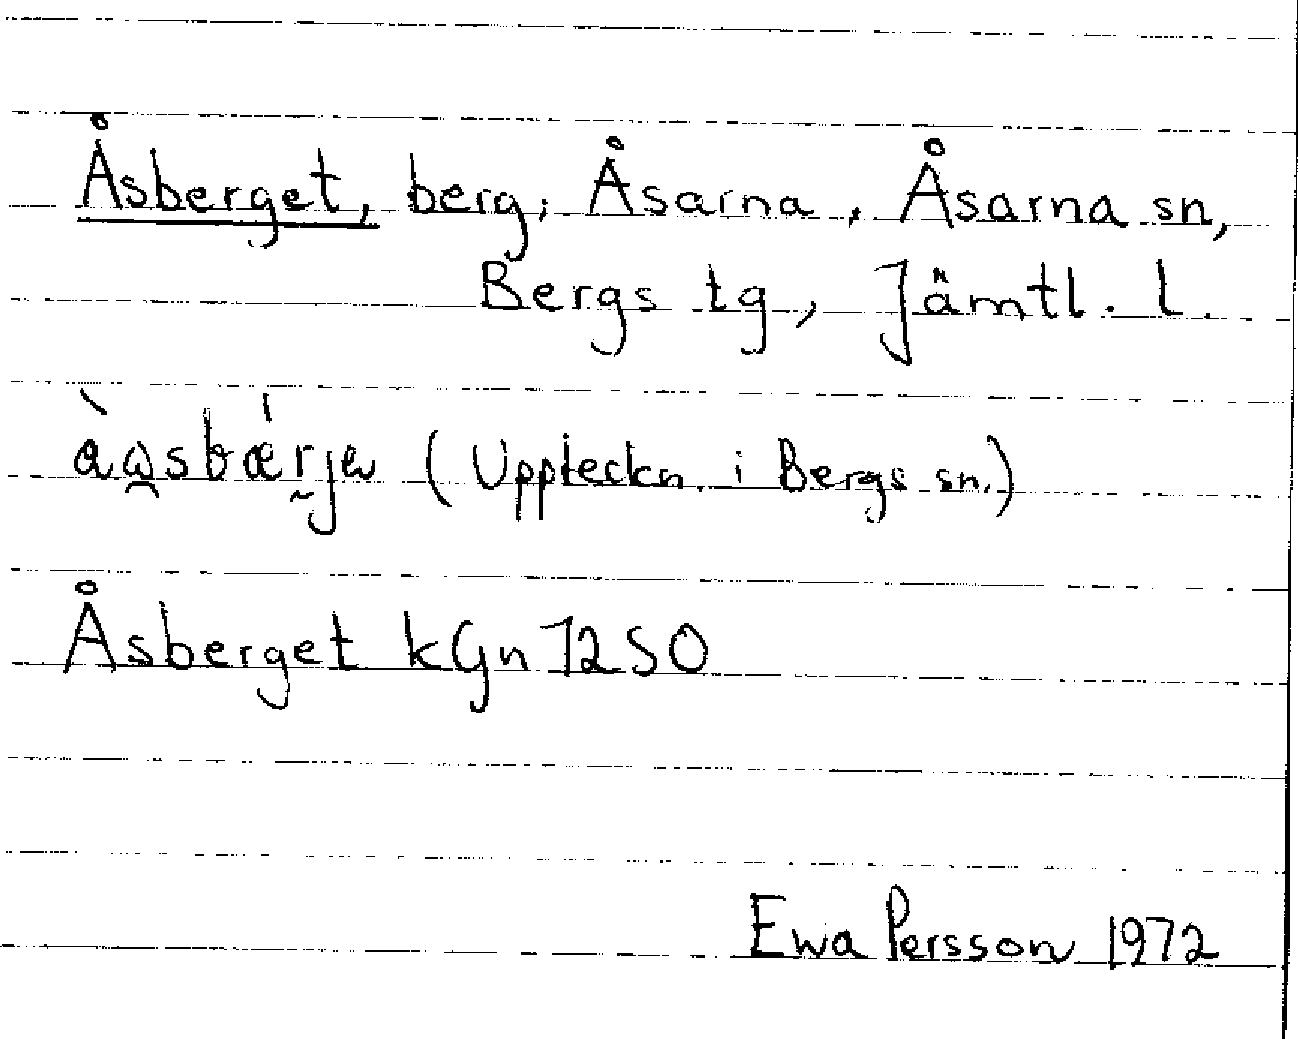 Åsberget, berg, Åsarna, Åsarna sn,
Bergs tg, Jämtl. l.
(Uppteckn. i Bergs sn.)
Åsberget kGn 7250
Ewa Persson 1972